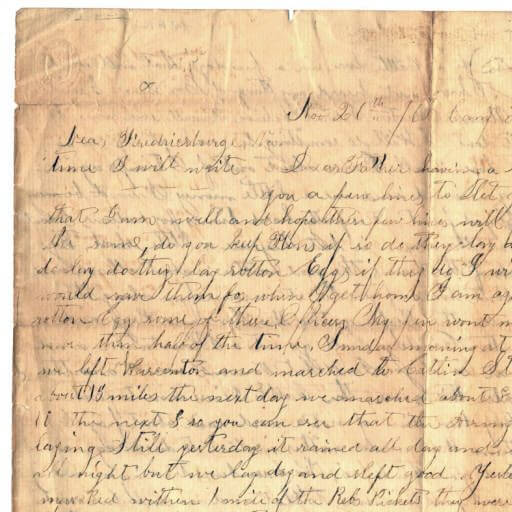 Nov 20th /62 Camp
Near Fredricksburge
time I will write Dear Father having a
you a few lines to let
that I am well and hope these few lines will
the same, do you keep Hens if so do they lay
do lay do they lay rotton Eggs if they do I
would save them for when I get home I am
rotton Egg some of these Officers They
more than half of the time, Sunday morning at
we left Warrenton and marched to
about 15 miles the next day we marched about
10 the next 8 so you can see that the Army
laying still yesterday it rained all day and
all night but we lay dry and slept good. Yest
marched within 1 mile of the Reb Pickets they were